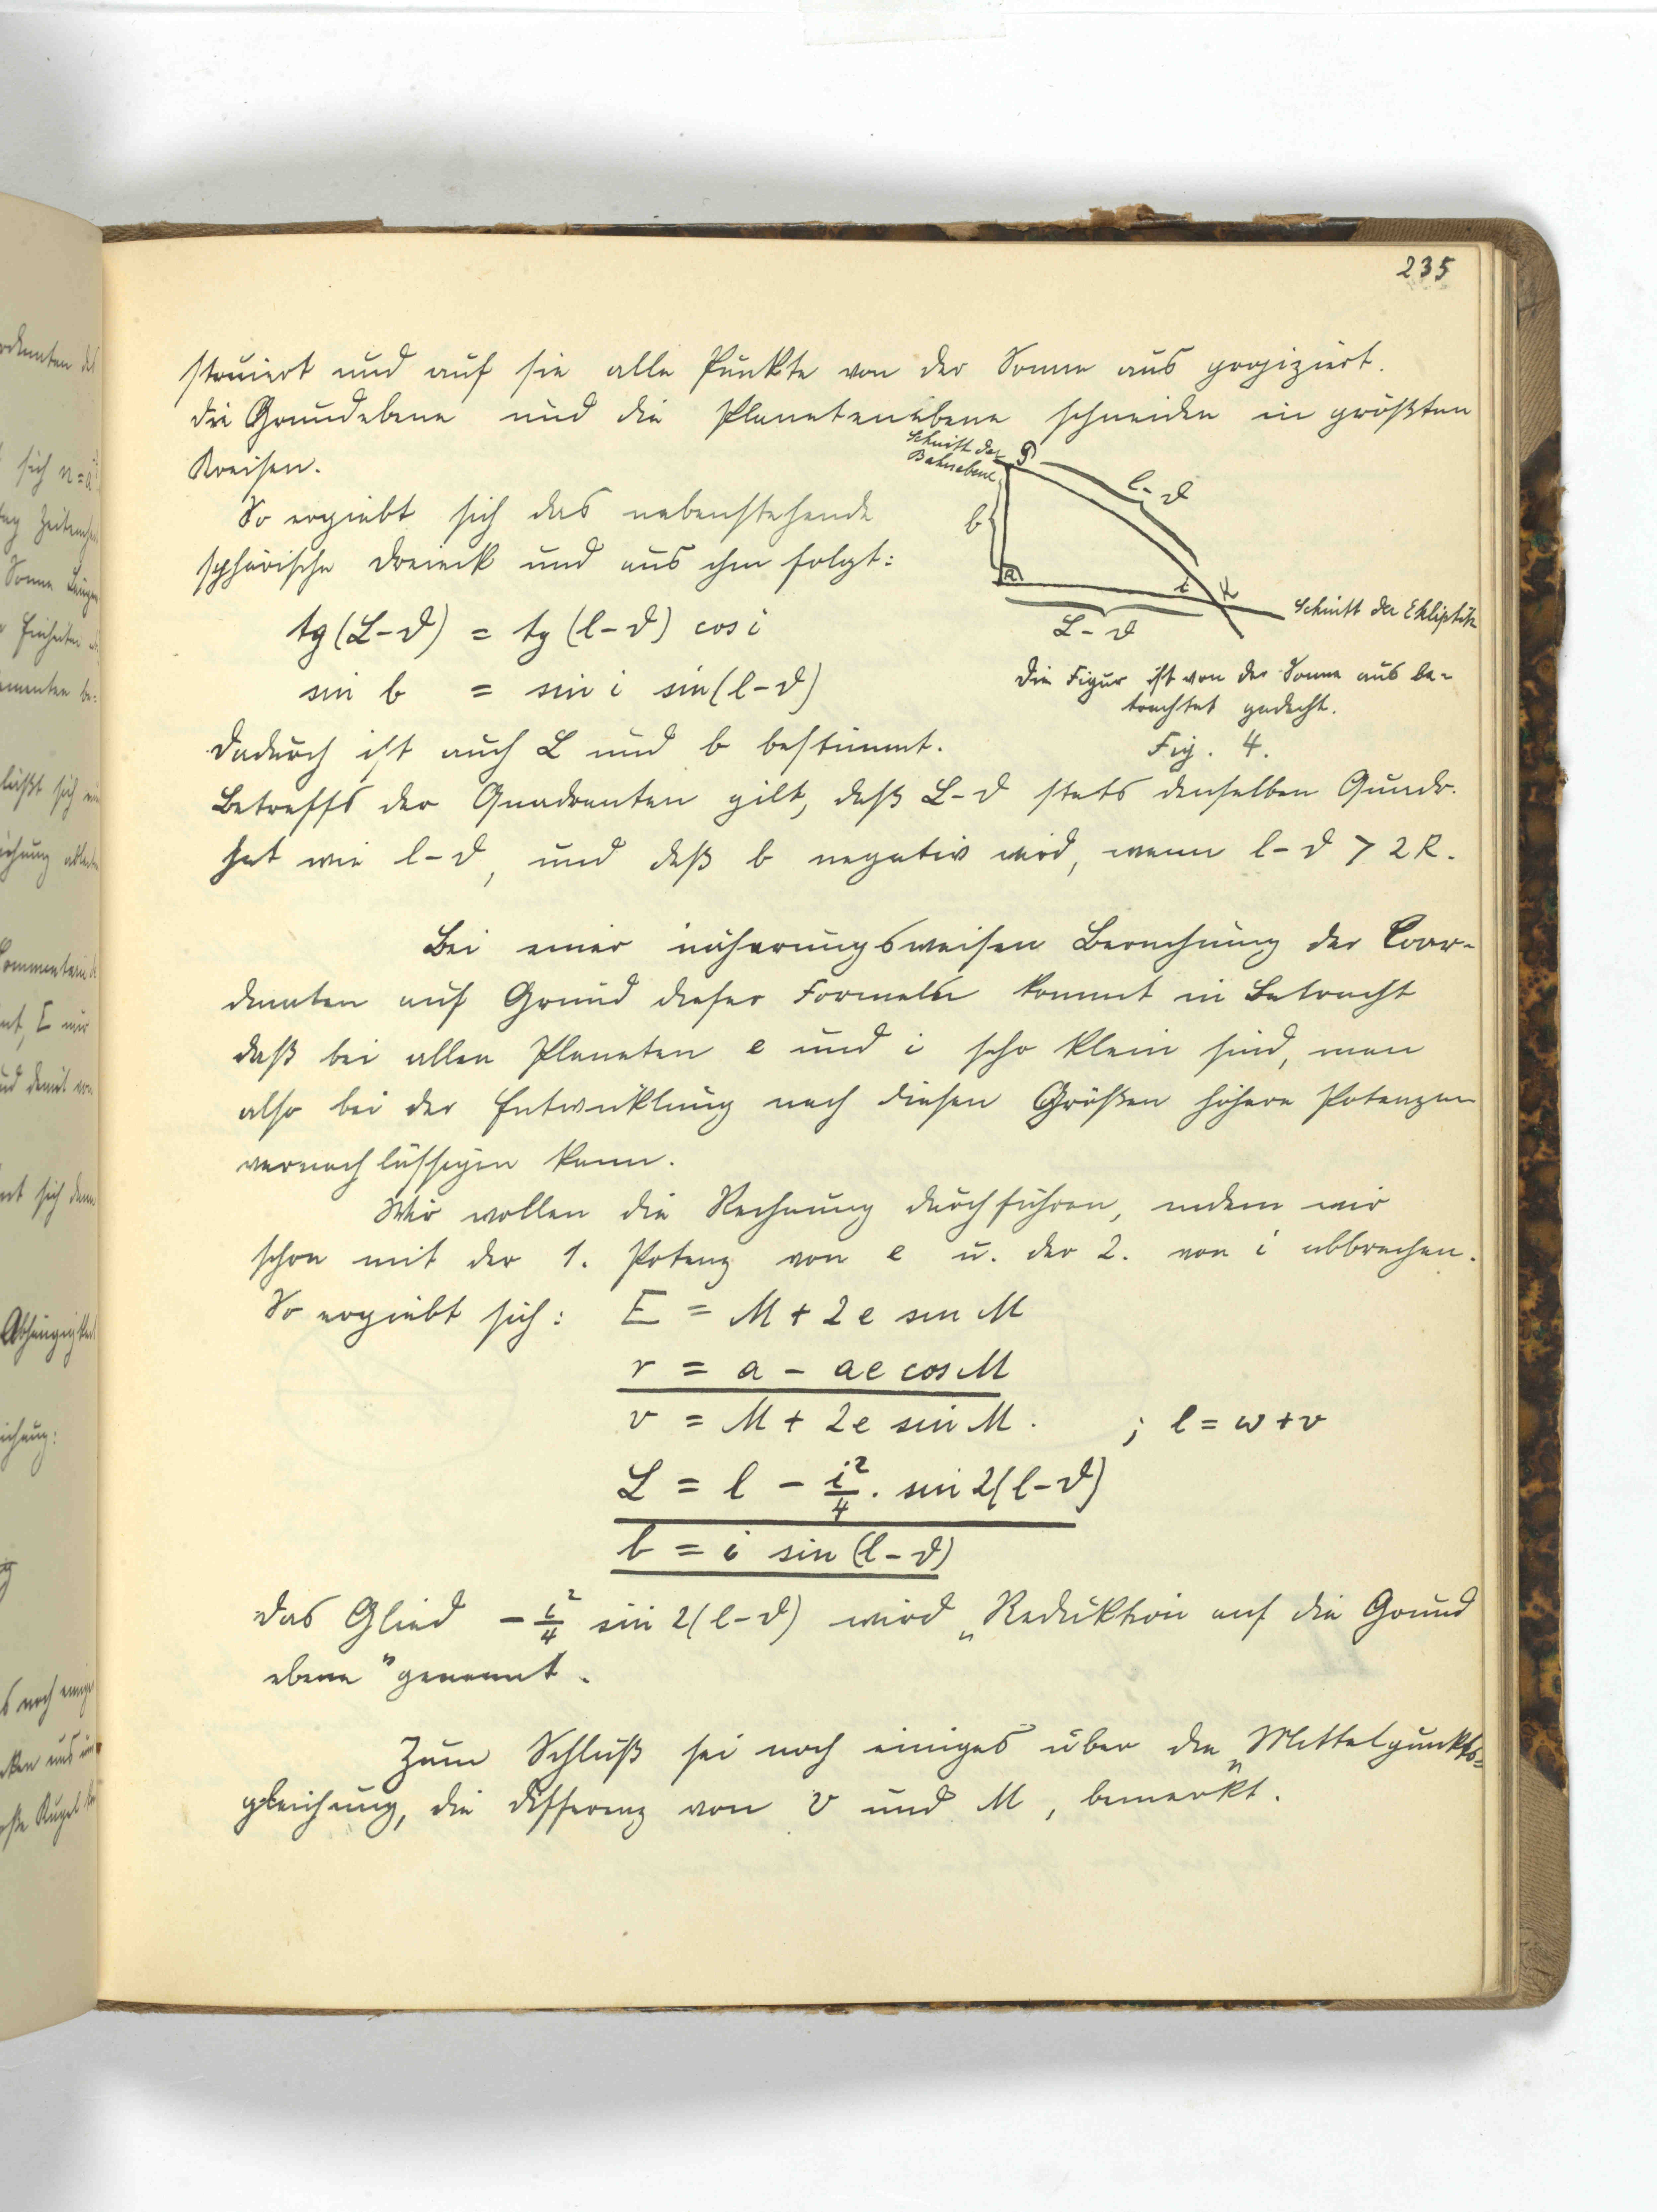 235
struiert und auf sie alle Punkte von der Sonne aus projiziert.
die Grundebene und die Planetenebene schneiden in größten
Kreisen.
Schnitt der
Bahnebene
P
l-ϑ
b
R
i
K
L-ϑ
Schnitt der Ekliptik
So ergiebt sich das nebenstehende
sphärische Dreieck und aus ihm folgt:
tg(L-ϑ) = tg(l-ϑ) cos i
sin b = sin i sin(l-ϑ)
Die Figur ist von der Sonne aus be-
trachtet gedacht.
Fig. 4.
Dadurch ist auch L und b bestimmt.
Betreffs der Quadranten gilt, daß L-ϑ stets denselben Quadr.
hat wie l-ϑ, und daß b negativ wird, wenn l-ϑ > 2R.
Bei einer näherungsweisen Berechnung der Coor-
dinaten auf Grund dieser Formeln kommt in Betracht
daß bei allen Planeten e und i sehr klein sind, man
also bei der Entwicklung nach diesen Größen höhere Potenzen
vernachlässigen kann.
Wir wollen die Rechnung durchführen, indem wir
schon mit der 1. Potenz von e u. der 2. von i abbrechen.
So ergiebt sich: E = M + 2e sin M
r = a - ae cos M
v = M + 2e sin M. ; l = w + v
L = l - i²/4 . sin 2(l-ϑ)
b = i sin (l-ϑ)
Das Glied - i²/4 sin 2(l-ϑ) wird „Reduktion auf die Grund
ebene" genannt.
Zum Schluß sei noch einiges über die „Mittelpunkts-
gleichung, die Differenz von v und M, bemerkt.